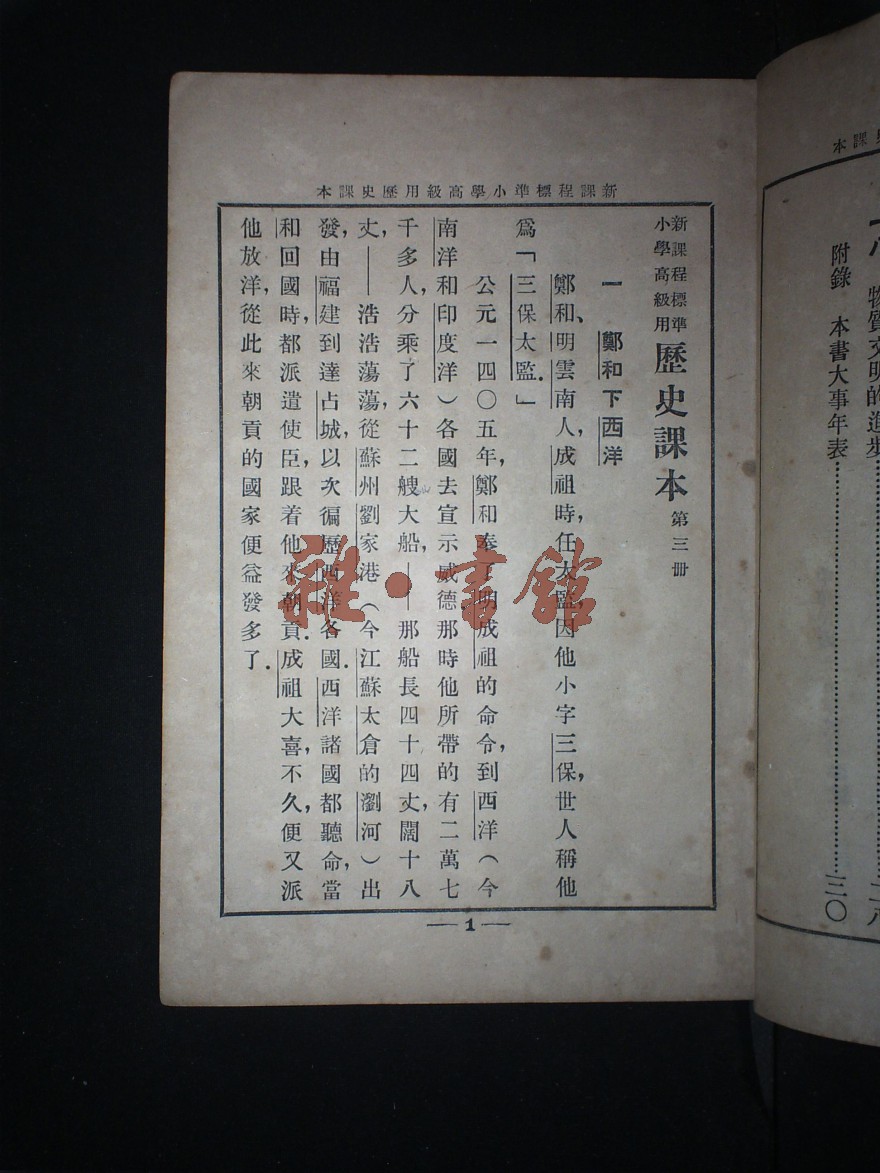 本課史歷用級高學小準標程課新
新課程標準
小學高級用
歷史課本 第三冊
一 鄭和下西洋
鄭和、明雲南人，成祖時，任太監，因他小字三保，世人稱他
爲「三保太監．」
公元一四〇五年，鄭和奉了明成祖的命令，到西洋（今
南洋和印度洋）各國去宣示威德，那時他所帶的有二萬七
千多人，分乘了六十二艘大船，——那船長四十四丈，闊十八
丈，——浩浩蕩蕩，從蘇州劉家港（今江蘇太倉的瀏河）出
發，由福建到達占城，以次徧歷西洋各國．西洋諸國都聽命，當
和回國時，都派遣使臣，跟着他來朝貢．成祖大喜，不久，便又派
他放洋，從此來朝貢的國家便益發多了．
—1—
雜·書館
本課
物質文明的進步……二八
附錄 本書大事年表……三〇